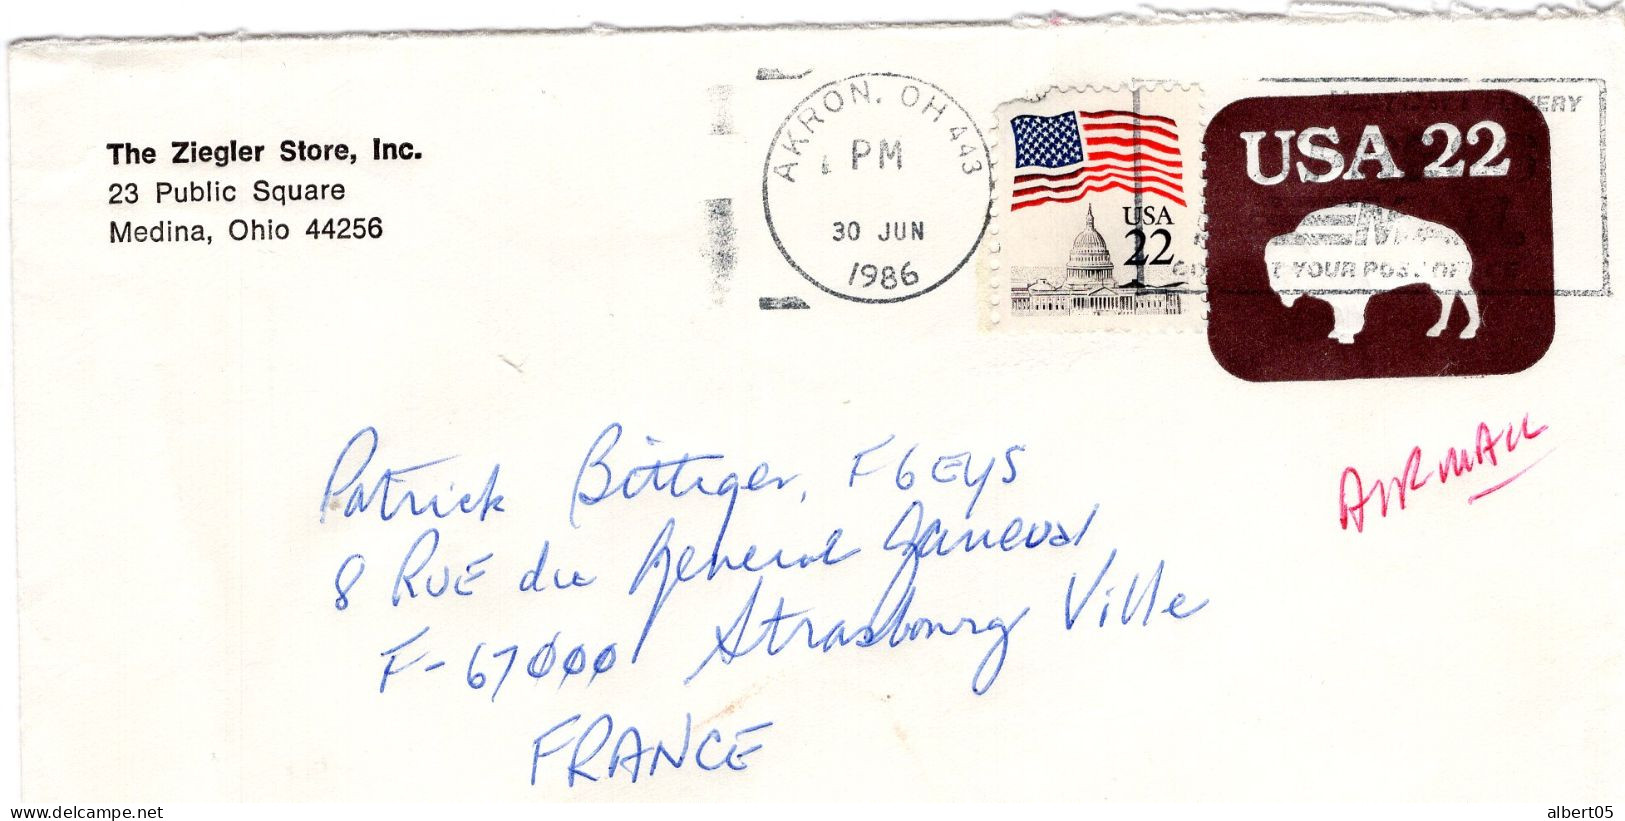 The Ziegler Store, Inc.
23 Public Square
Medina, Ohio 44256
AKRON, OH 443
PM
30 JUN
1986
USA
22
USA 22
YOUR POST OFFICE
AIRMAIL
Patrick Böttiger, F6EYS
8 RUE du General Ganeval
F-67000 Strasbourg Ville
FRANCE
albert05